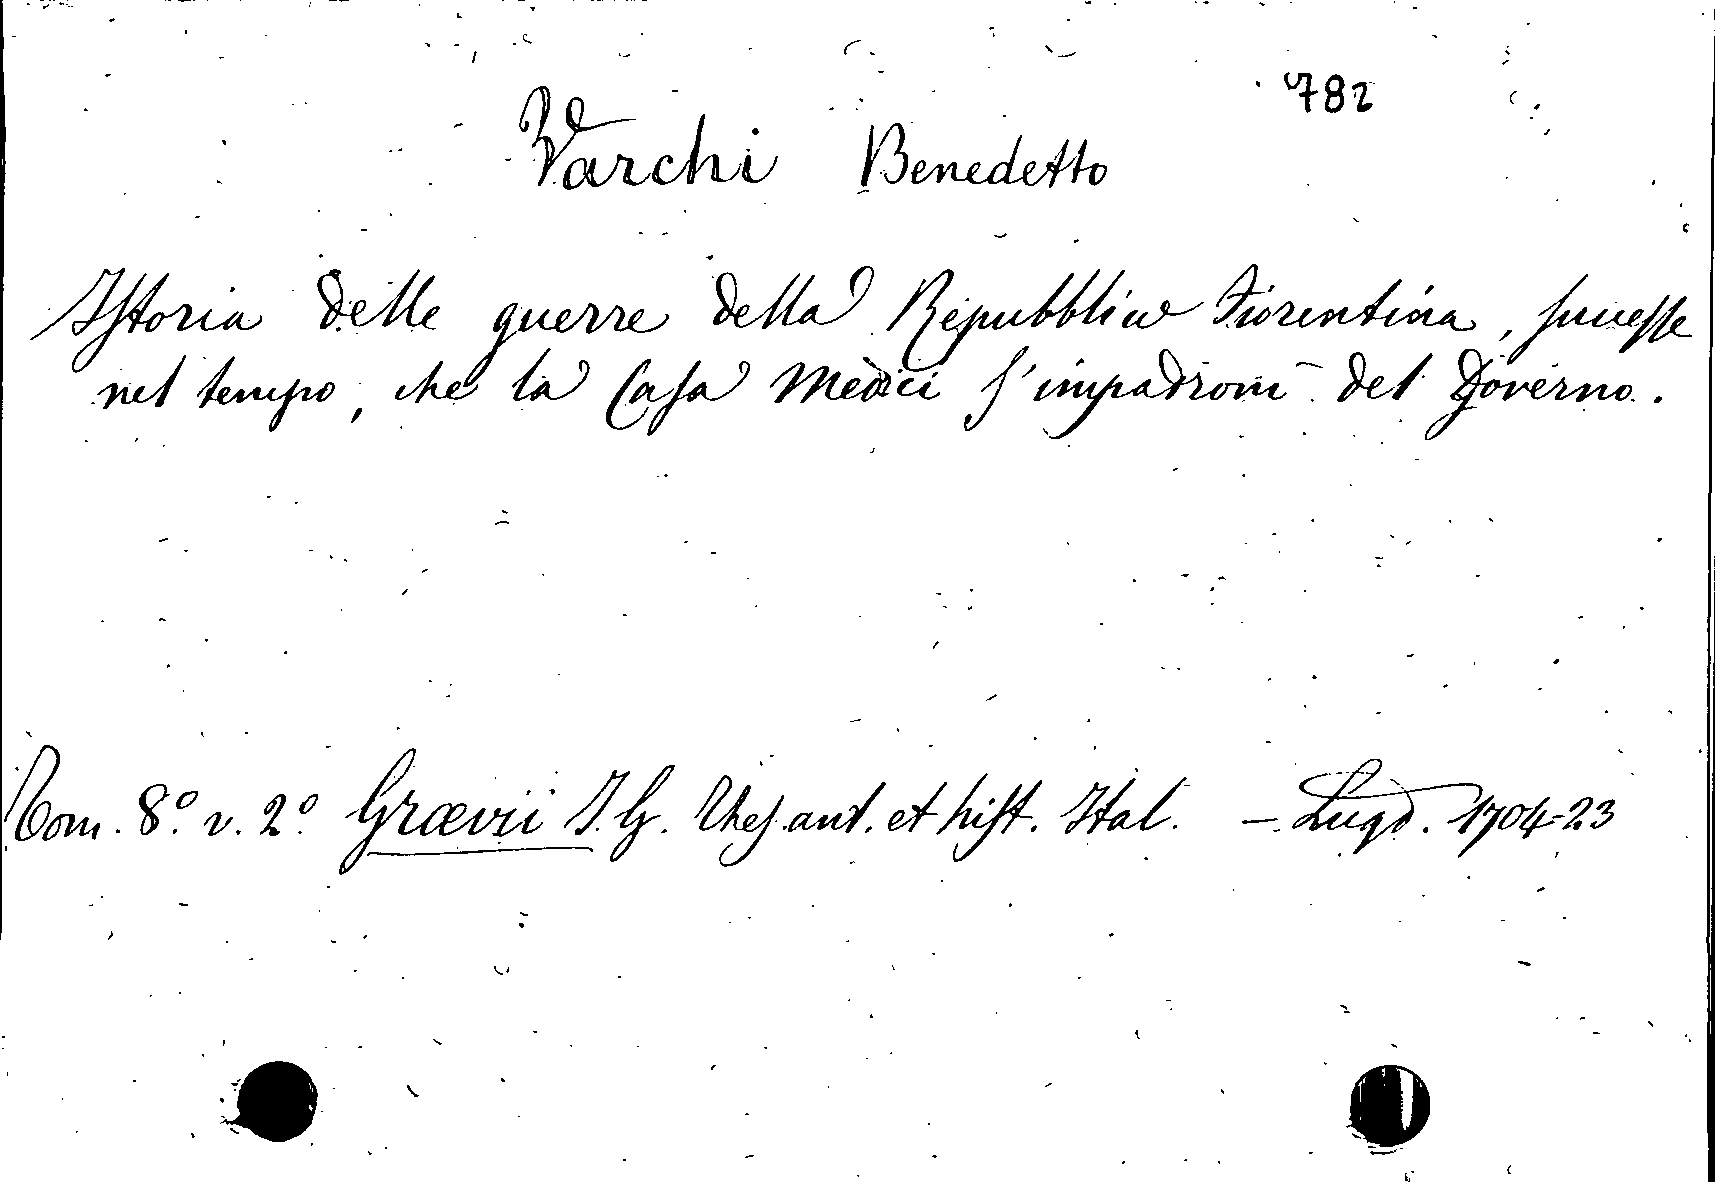 782
Varchi Benedetto
Istoria delle guerre della Repubblica Fiorentina, successe
nel tempo, che la Casa Medici s'impadronì del Governo.
Tom. 8.º v. 2.º Grævii I. G. Thes. ant. et hist. Ital. – Lugd. 1704-23